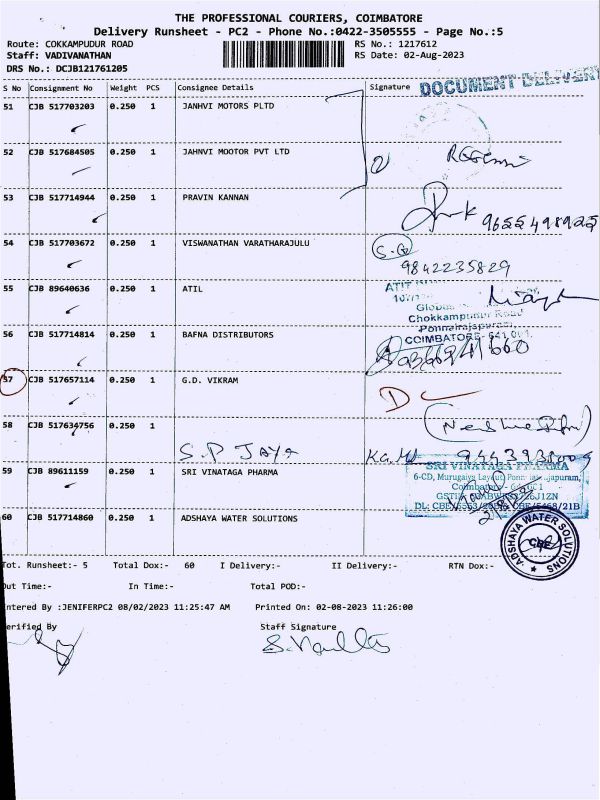 THE PROFESSIONAL COURIERS, COIMBATORE
Delivery Runsheet - PC2 - Phone No.:0422-3505555 - Page No.:5
Route: COKKAMPUDUR ROAD
RS No.: 1217612
Staff: VADIVANATHAN
RS Date: 02-Aug-2023
DRS No.: DCJB121761205
S No Consignment No Weight PCS Consignee Details Signature
DOCUMENT DELIVERY
51 CJB 517703203 0.250 1 JANHVI MOTORS PLTD
52 CJB 517684505 0.250 1 JAHNVI MOOTOR PVT LTD
53 CJB 517714944 0.250 1 PRAVIN KANNAN
9655498925
54 CJB 517703672 0.250 1 VISWANATHAN VARATHARAJULU
S.G
9842235829
55 CJB 89640636 0.250 1 ATIL
Chokkampudur Road
Ponnairajapuram,
COIMBATORE - 641 001
56 CJB 517714814 0.250 1 BAFNA DISTRIBUTORS
57 CJB 517657114 0.250 1 G.D. VIKRAM
D
58 CJB 517634756 0.250 1
S.P JAYA
59 CJB 89611159 0.250 1 SRI VINATAGA PHARMA
SRI VINATAGA PHARMA
6-CD, Murugaiya Layout
60 CJB 517714860 0.250 1 ADSHAYA WATER SOLUTIONS
ADSHAYA WATER SOLUTIONS
CBE
Tot. Runsheet:- 5 Total Dox:- 60 I Delivery:- II Delivery:- RTN Dox:-
Out Time:- In Time:- Total POD:-
ntered By :JENIFERPC2 08/02/2023 11:25:47 AM Printed On: 02-08-2023 11:26:00
erified By Staff Signature